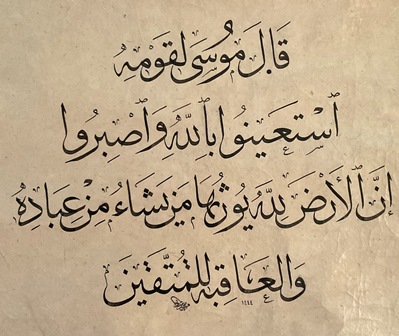 قَالَ مُوسَى لِقَوْمِهِ
ٱسْتَعِينُوا بِٱللَّهِ وَٱصْبِرُوا
إِنَّ ٱلْأَرْضَ لِلَّهِ يُورِثُهَا مَن يَشَاءُ مِنْ عِبَادِهِ
وَالْعَاقِبَةُ لِلْمُتَّقِينَ
١٤٤٤